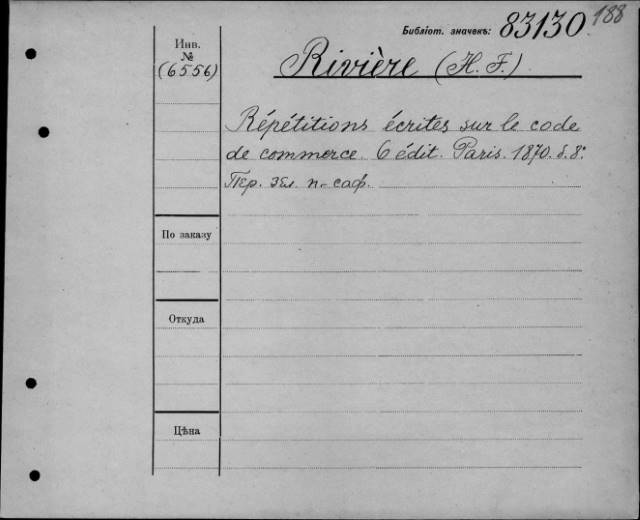 188
Библіот. значекъ: 83130
Инв.
№
(6556)
Rivière (H. F.)
Répétitions écrites sur le code
de commerce. 6 édit. Paris. 1870. б. 8°.
Пер. зел. п.-саф.
По заказу
Откуда
Цѣна